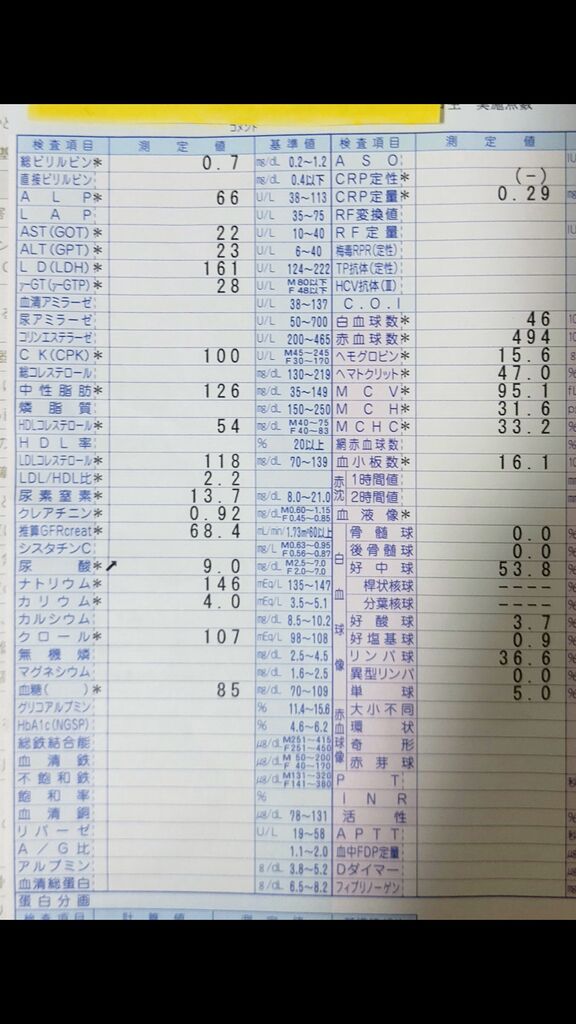 コメント
検査項目 測定値 基準値 検査項目 測定値
総ビリルビン* 0.7 mg/dL 0.2〜1.2 ASO
直接ビリルビン mg/dL 0.4以下 CRP定性* (-)
ALP* 66 U/L 38〜113 CRP定量* 0.29
LAP U/L 35〜75 RF変換値
AST(GOT)* 22 U/L 10〜40 RF定量
ALT(GPT)* 23 U/L 6〜40 梅毒RPR(定性)
LD(LDH)* 161 U/L 124〜222 TP抗体(定性)
γ-GT(γ-GTP)* 28 U/L M80以下 F48以下 HCV抗体(Ⅲ)
血清アミラーゼ U/L 38〜137 C.O.I
尿アミラーゼ U/L 50〜700 白血球数* 46
コリンエステラーゼ U/L 200〜465 赤血球数* 494
CK(CPK)* 100 U/L M45〜245 F30〜170 ヘモグロビン* 15.6
総コレステロール mg/dL 130〜219 ヘマトクリット* 47.0
中性脂肪* 126 mg/dL 35〜149 MCV* 95.1
燐脂質 mg/dL 150〜250 MCH* 31.6
HDLコレステロール* 54 mg/dL M40〜75 F40〜83 MCHC* 33.2
HDL率 % 20以上 網赤血球数
LDLコレステロール* 118 mg/dL 70〜139 血小板数* 16.1
LDL/HDL比* 2.2 赤沈 1時間値
尿素窒素* 13.7 mg/dL 8.0〜21.0 2時間値
クレアチニン* 0.92 mg/dL M0.60〜1.15 F0.45〜0.85 血液像*
推算GFRcreat* 68.4 mL/min/1.73m² 60以上 白血球像 骨髄球 0.0
シスタチンC mg/L M0.63〜0.95 F0.56〜0.87 後骨髄球 0.0
尿酸* 9.0 mg/dL M2.5〜7.0 F2.0〜7.0 好中球 53.8
ナトリウム* 146 mEq/L 135〜147 桿状核球 ----
カリウム* 4.0 mEq/L 3.5〜5.1 分葉核球 ----
カルシウム mg/dL 8.5〜10.2 好酸球 3.7
クロール* 107 mEq/L 98〜108 好塩基球 0.9
無機燐 mg/dL 2.5〜4.5 リンパ球 36.6
マグネシウム mg/dL 1.6〜2.5 異型リンパ 0.0
血糖( )* 85 mg/dL 70〜109 単球 5.0
グリコアルブミン % 11.4〜15.6 赤血球像 大小不同
HbA1c(NGSP) % 4.6〜6.2 環状
総鉄結合能 μg/dL M251〜415 F251〜450 奇形
血清鉄 μg/dL M50〜200 F40〜170 赤芽球
不飽和鉄 μg/dL M131〜320 F141〜380 PT
飽和率 % INR
血清銅 μg/dL 78〜131 活性
リパーゼ U/L 19〜58 APTT
A/G比 1.1〜2.0 血中FDP定量
アルブミン g/dL 3.8〜5.2 Dダイマー
血清総蛋白 g/dL 6.5〜8.2 フィブリノーゲン
蛋白分画
検査項目 計算値 測定値